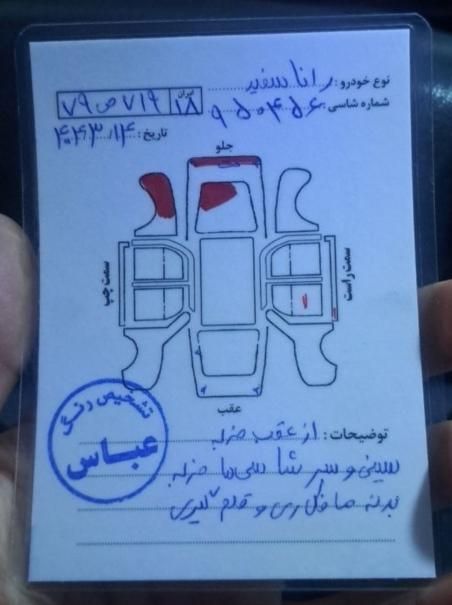 نوع خودرو: رانا سفید
شماره شاسی: ۹۵۰۴۵۶
ایران ۱۸ ۷۱۹ ص ۷۹
تاریخ:
جلو
سمت چپ
سمت راست
عقب
تشخیص رنگ
عباس
توضیحات: از عقب ضربه
سینی و سر شاسی‌ها ضربه
بدنه صافکاری و قلم گیری